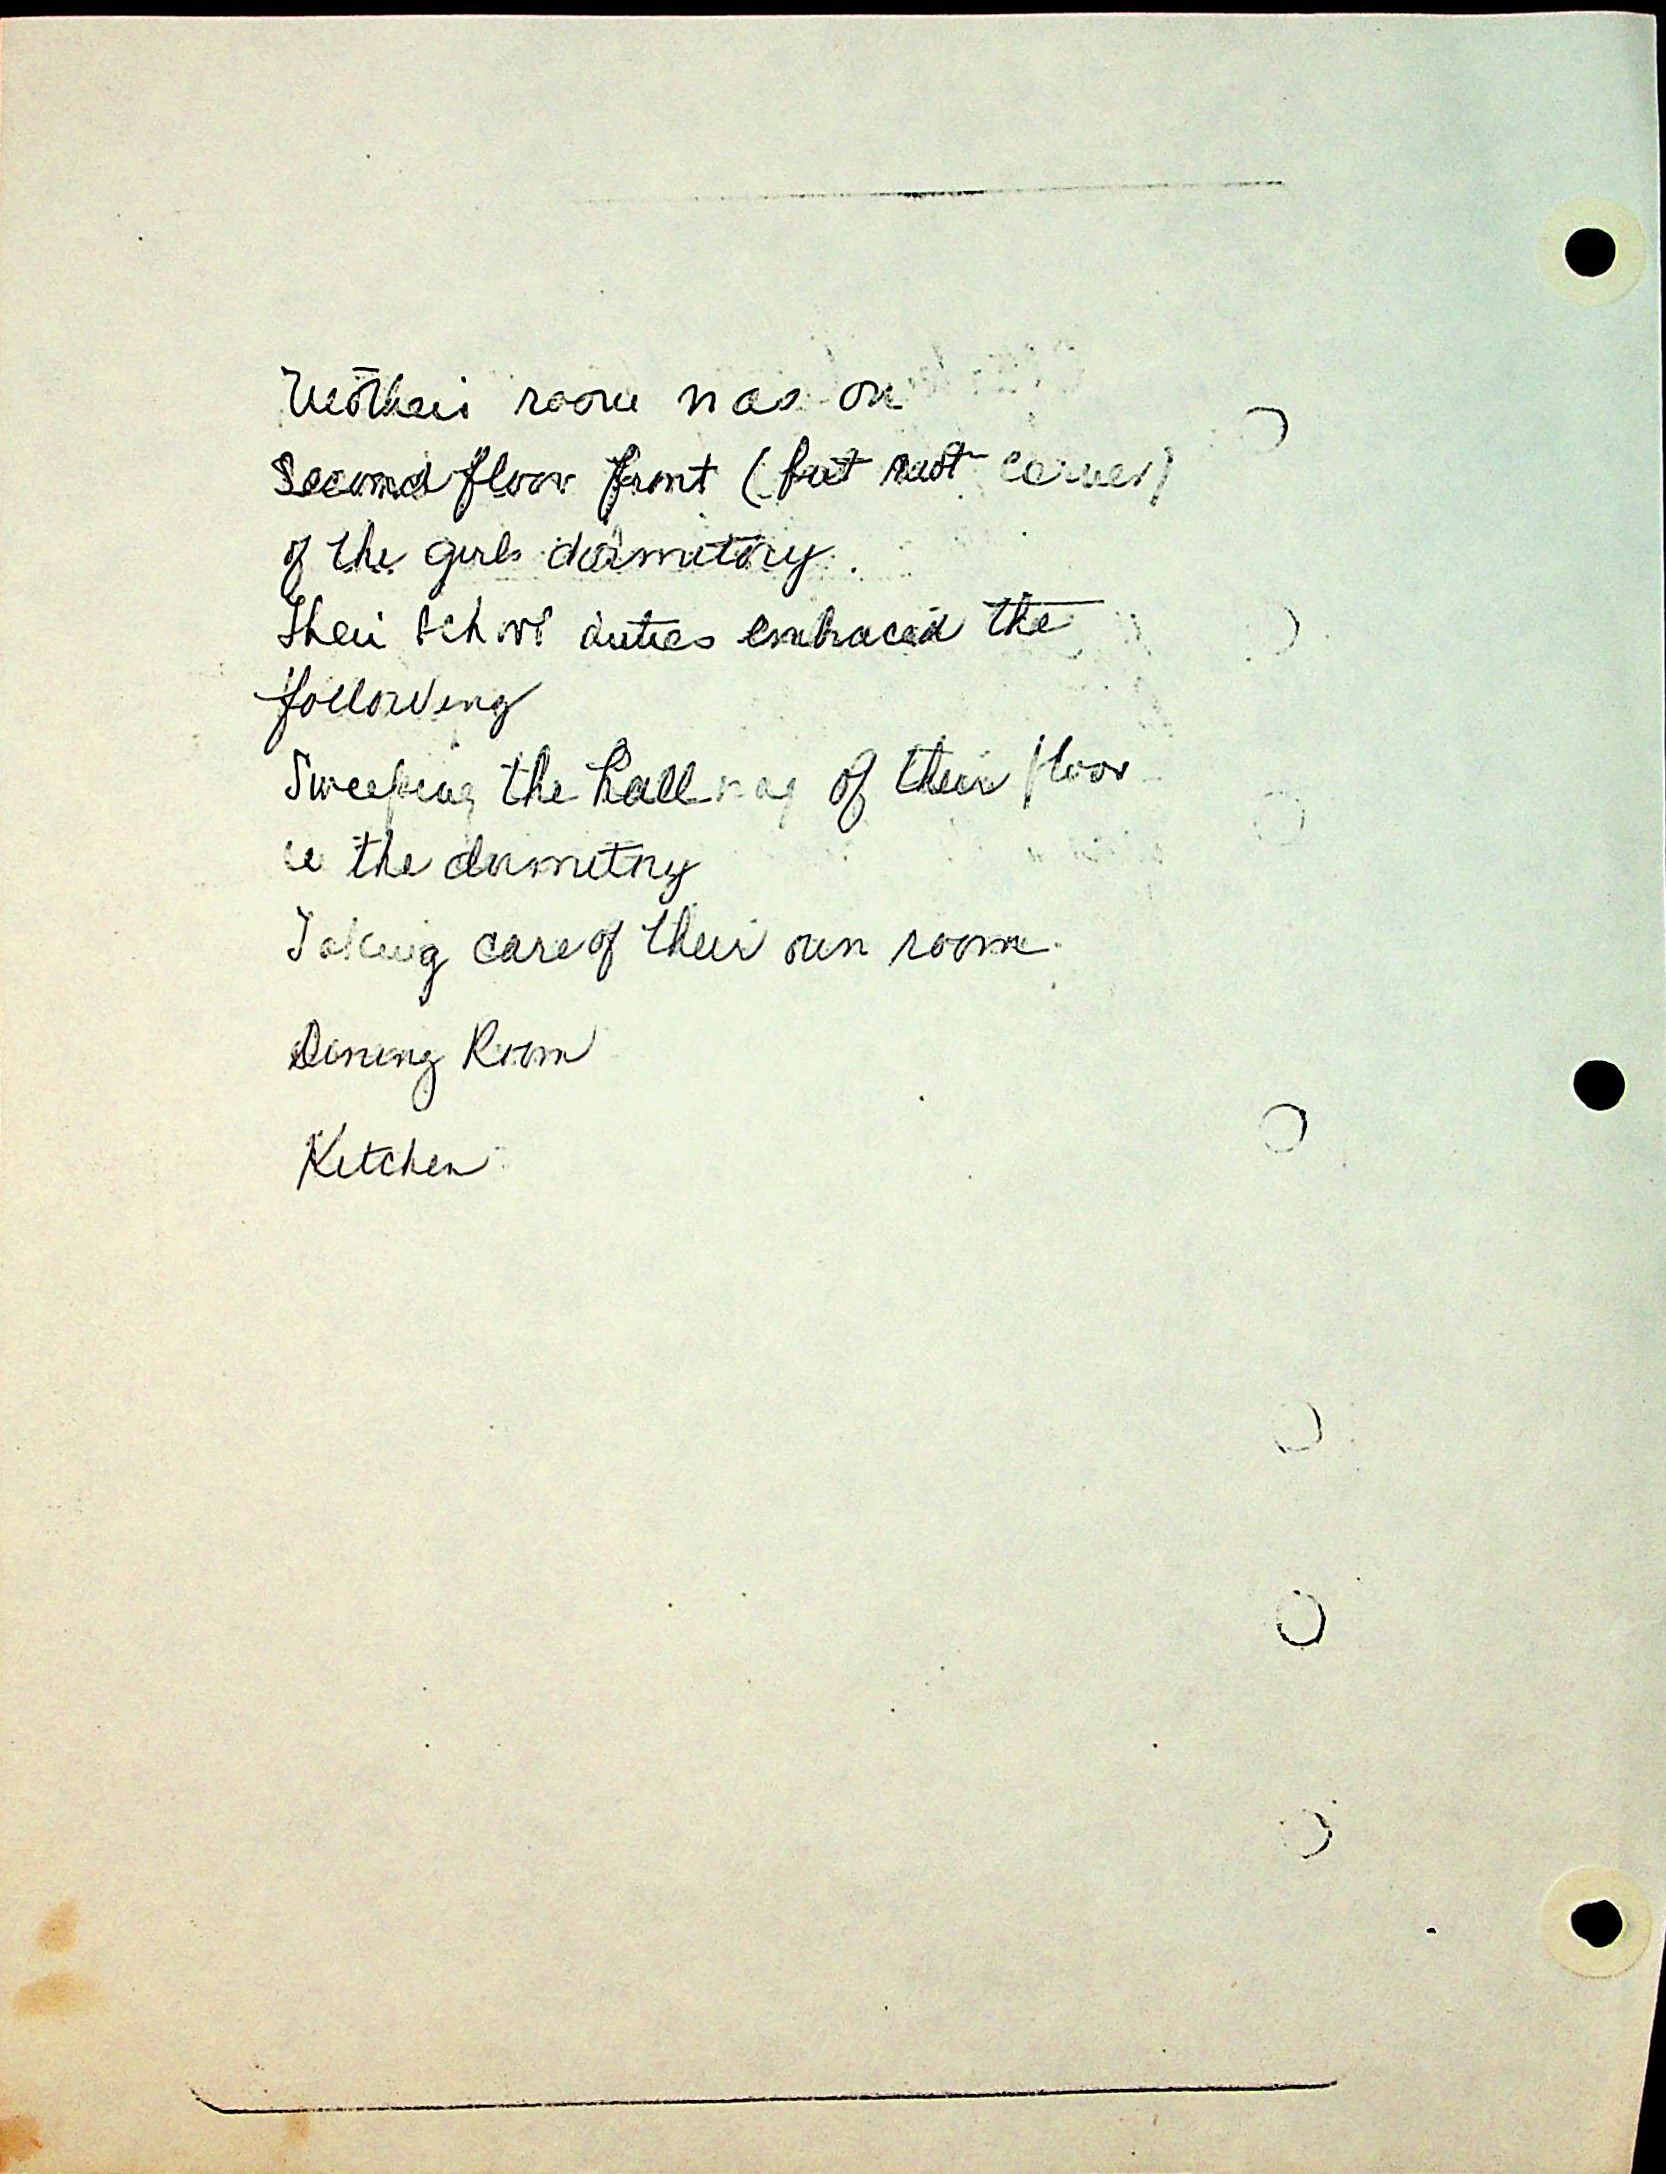 Mother's room was on
Second floor front (but not corner)
of the girls dormitory.
Their school duties embraced the
following
Sweeping the hallway of their floor
in the dormitory
Taking care of their own room.
Dining Room
Kitchen